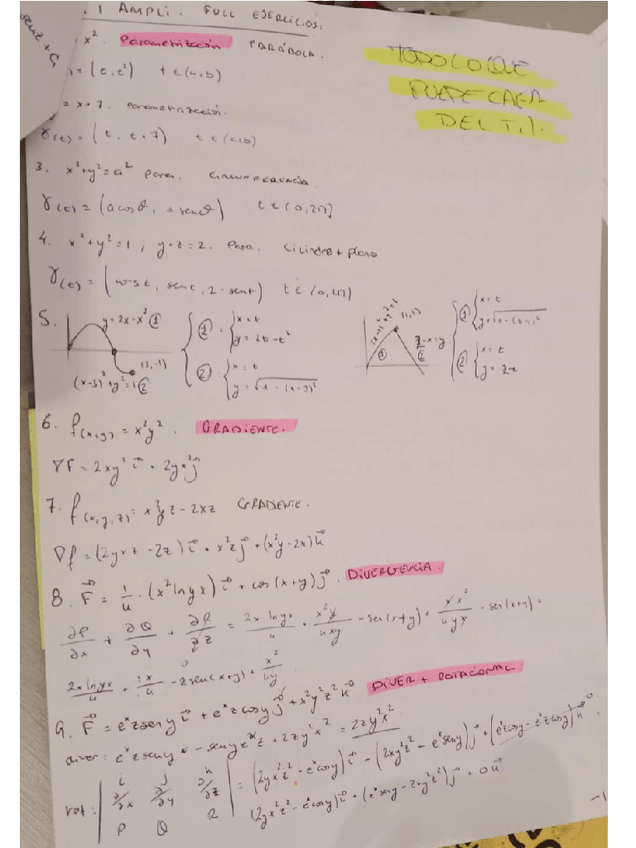 . 1 AMPLI. FULL EJERCICIOS.
x². Parametrización PARÁBOLA.
TODO LO QUE
PUEDE CAER
DEL T.1.
= (t, t²) t ∈ (a,b)
= x+7. parametrización.
γ(t) = (t, t+7) t ∈ (a,b)
3. x²+y²=a² para. CIRCUNFERENCIA
γ(t) = (a cosθ, a senθ) t ∈ (0,2π]
4. x²+y²=1 ; y+z=2. Para. Cilindro + plano
γ(t) = (cos t, sen t, 2-sent) t ∈ (0,2π)
5. y=2x-x² ① (3,-1) (x-3)²+y²=1 ②
① : {x=t y=2t-t²
② : {x=t y=√1-(t-3)²
(x-1)²+y²=1 (1,1) 2-x=y
① {x=t y=√1-(t-1)²
② {x=t y=2-t
6. f(x,y) = x²y². GRADIENTE.
∇F = 2xy² i + 2yx² j
7. f(x,y,z) = x²yz-2xz GRADIENTE.
∇f = (2yxz-2z) i + x²z j + (x²y-2x) k
8. F = 1/4 · (x² ln yx) i + cos (x+y) j. DIVERGENCIA.
∂P/∂x + ∂Q/∂y + ∂R/∂z = 2x·lnyx/4 + x²y/4xy - sen(x+y) +
2x lnyx/4 + 1x/4 - 2 sen(x+y) + x²/4y
9. F = eˣz sen y i + eˣz cos y j + x²y²z² k DIVER + ROTACIONAL.
diver: eˣz sen y - sen y eˣz + 2zy²x² = 2zy²x²
rot: | i j k ∂/∂x ∂/∂y ∂/∂z P Q R | = (2yx²z² - eˣcos y) i - (2xy²z² - eˣsen y) j + (eˣz cos y - eˣz cos y) k
(2yx²z² - eˣcos y) i + (eˣsen y - 2xy²z²) j + 0k
-1